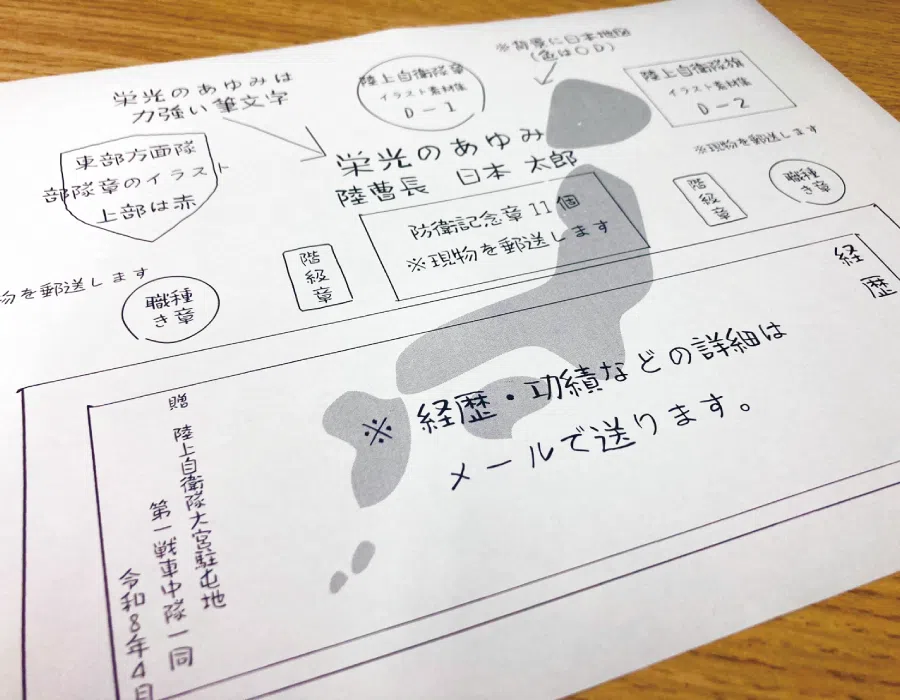 ※背景に日本地図
(色はOD)
栄光のあゆみは
力強い筆文字
陸上自衛隊章
イラスト素材集
D-1
陸上自衛隊旗
イラスト素材集
D-2
東部方面隊
部隊章のイラスト
上部は赤
栄光のあゆみ
陸曹長 日本 太郎
※現物を郵送します
階級章
職種き章
防衛記念章11個
※現物を郵送します
物を郵送します
職種
き章
階級章
経歴
※経歴・功績などの詳細は
メールで送ります。
贈 陸上自衛隊大宮駐屯地
第一戦車中隊一同
令和8年4